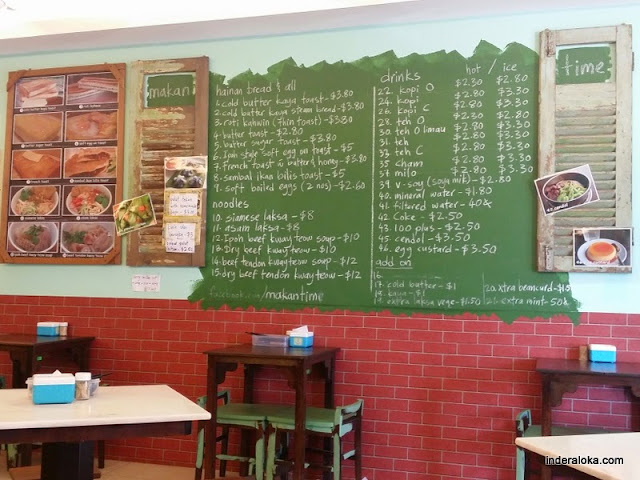 makan
time
hainan bread & all
1. cold butter kaya toast - $3.80
2. cold butter kaya steam bread - $3.80
3. roti kahwin (Thin toast) - $3.30
4. butter toast - $2.80
5. butter sugar toast - $3.80
6. Ipoh-style soft egg on toast - $5
7. french toast w butter & honey - $3.80
8. Sambal ikan bilis toast - $5
9. soft boiled eggs (2 nos) - $2.60
noodles
10. siamese laksa - $8
11. asam laksa - $8
12. Ipoh beef kway teow soup - $10
13. dry beef kway teow - $10
14. beef tendon kway teow soup - $12
15. dry beef tendon kway teow - $12
facebook.com/makantime
drinks hot / ice
22. kopi O $2.30 $2.80
24. kopi $2.80 $3.30
26. kopi C $2.80 $3.30
28. teh O $2.30 $2.80
30. teh O limau $2.80 $3.30
31. teh $2.80 $3.30
33. teh C $2.80 $3.30
35. cham $2.80 $3.30
37. milo $2.80 $3.30
39. v-soy (soy milk) - $2.80
40. mineral water - $1.80
41. filtered water - 40¢
42. Coke - $2.50
43. 100 plus - $2.50
45. cendol - $3.50
46. egg custard - $3.50
add on
16.
17. cold butter - $1
18. kaya - $1
19. extra laksa vege - $1.50
20. extra beancurd - $1
21. extra mint - 50¢
www.inderaloka.com